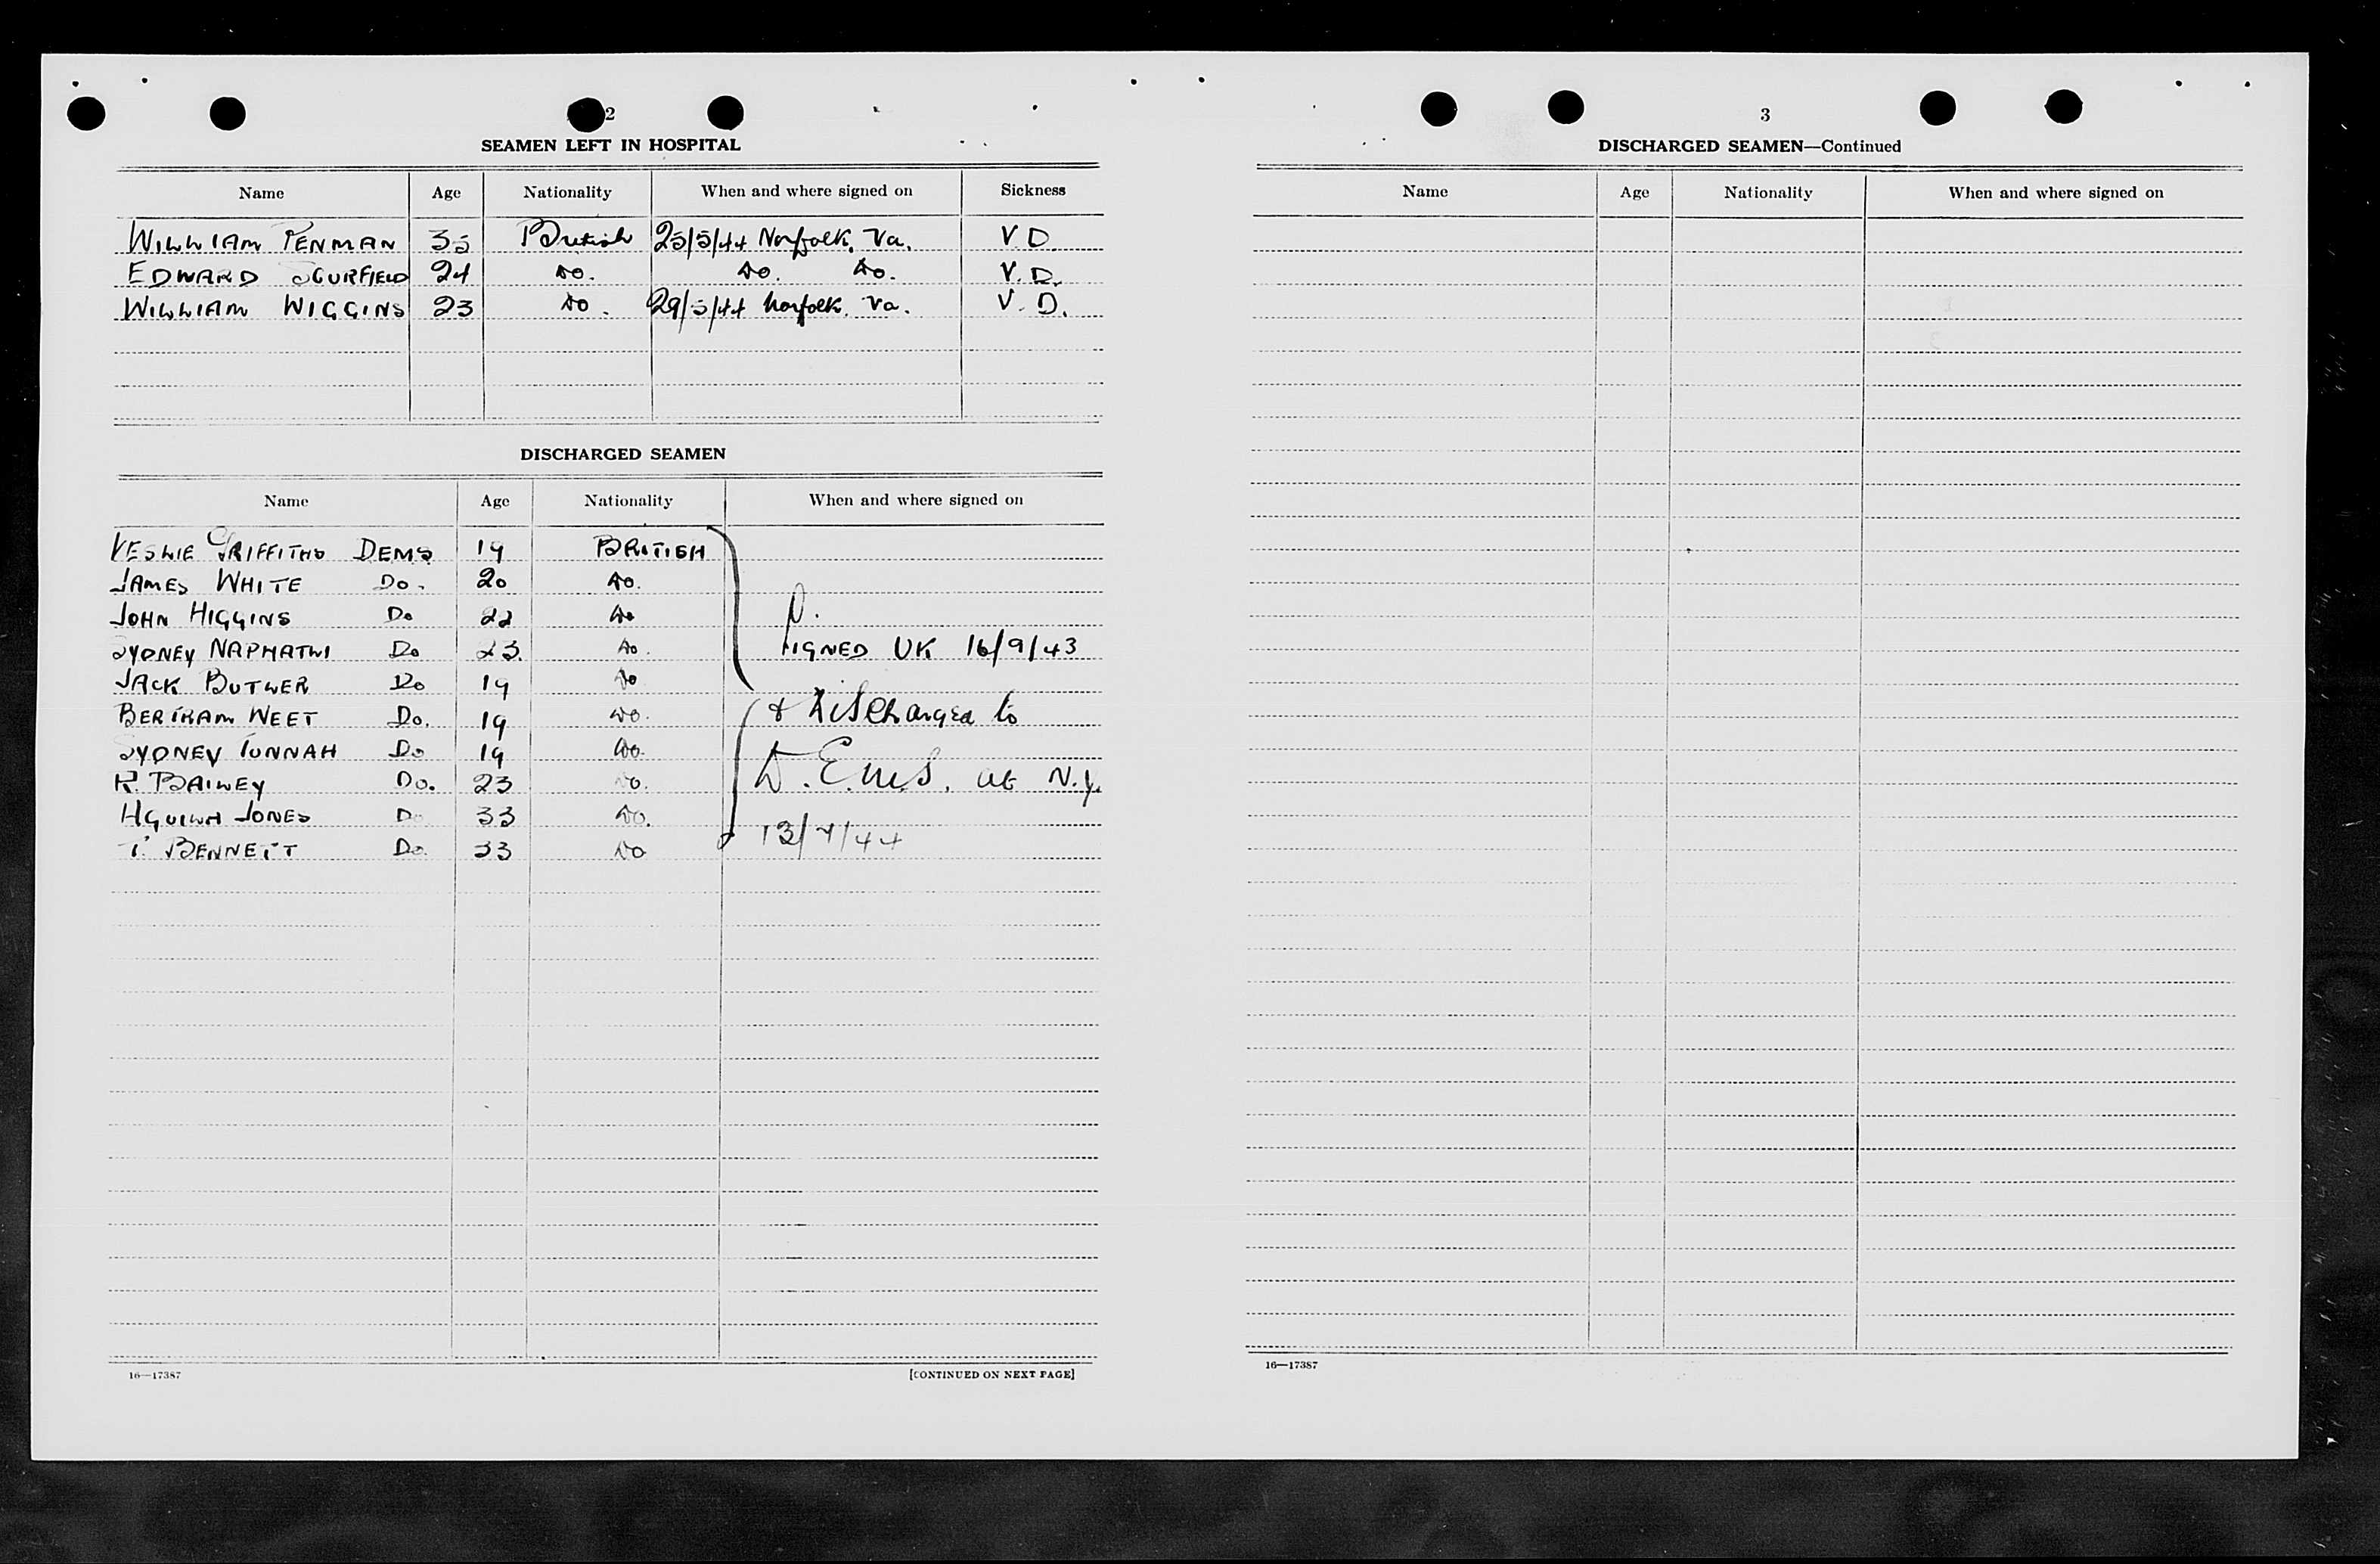 2
SEAMEN LEFT IN HOSPITAL
Name Age Nationality When and where signed on Sickness
WILLIAM PENMAN 35 British 25/5/44 Norfolk, Va. V.D.
EDWARD SCURFIELD 24 Do. Do. Do. V.D.
WILLIAM WIGGINS 23 Do. 29/5/44 Norfolk. Va. V.D.
DISCHARGED SEAMEN
Name Age Nationality When and where signed on
LESLIE GRIFFITHS DEMS 19 BRITISH
JAMES WHITE Do. 20 Do.
JOHN HIGGINS Do 22 Do
SYDNEY NAPHATLI Do 23. Do. SIGNED UK 16/9/43
JACK BUTLER Do 19 Do
BERTRAM WEET Do. 19 Do. & Discharged to
SYDNEY TUNNAH Do 19 Do. D.E.M.S. at N.Y.
R. BAILEY Do. 23 Do.
JONES Do 33 Do. 13/7/44
T. BENNETT Do. 33 Do
16—17387 [CONTINUED ON NEXT PAGE]
3
DISCHARGED SEAMEN—Continued
Name Age Nationality When and where signed on
16—17387